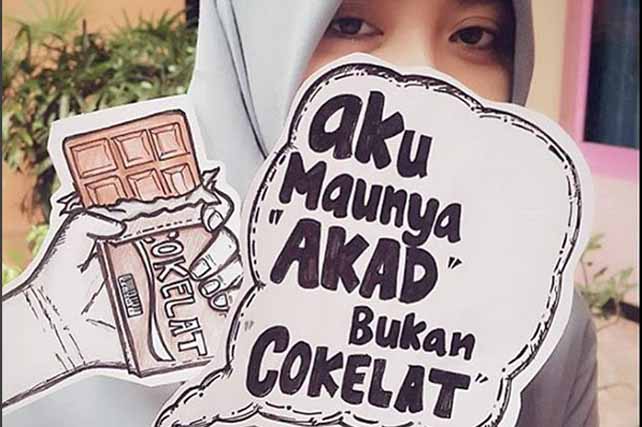 aku
Maunya
"AKAD"
Bukan
"COKELAT"
COKELAT